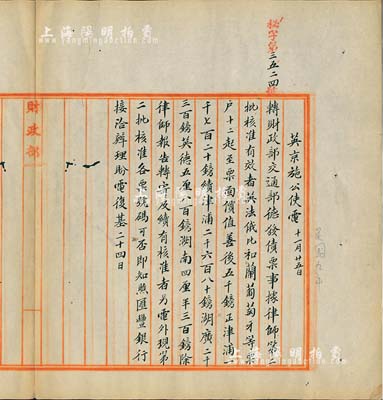 上海陽明拍賣
www.yangmingauction.com
秘字第三五二四號
英京施公使電 十一月廿五日
轉財政部交通部德發債票事據律師第二
批核准有效者英法俄比和蘭葡萄牙等票
户十二起至票面價值善後五千鎊正津浦一
千七百二十鎊續津浦二千六百八十鎊湖廣二十
三百鎊英德五厘六百鎊湖南四厘半三百鎊除
律師報告轉寄及續有核准者另電外現第
二批核准各票號碼可否即知照匯豐銀行
接洽辦理盼電復基二十四日
財政部